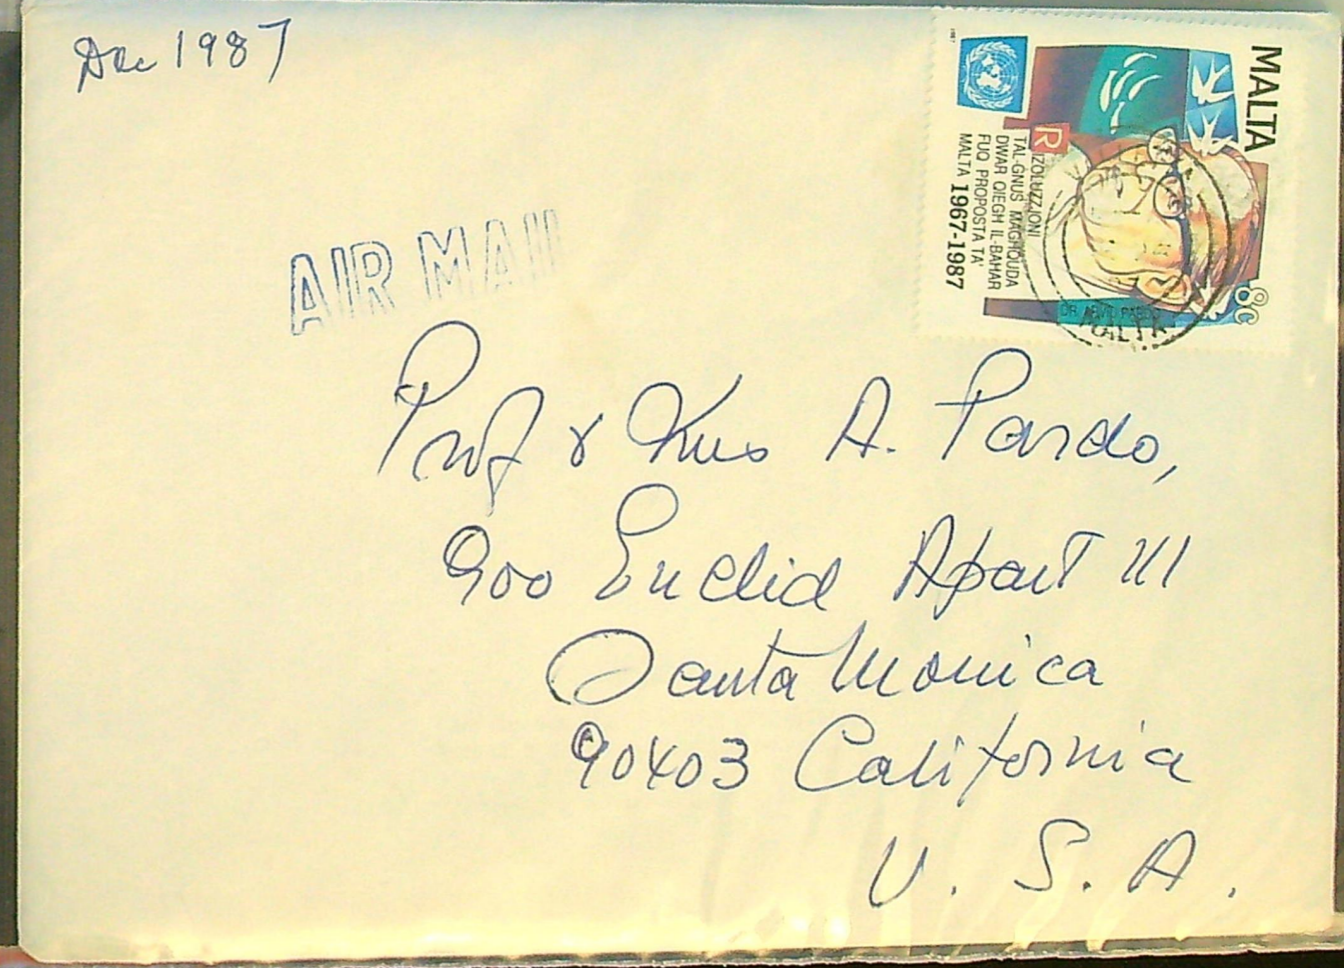 Dec 1987
AIR MAIL
MALTA
8c
RIZOLUZZJONI
TAL-ĠNUS MAGĦQUDA
DWAR QIEGĦ IL-BAĦAR
FUQ PROPOSTA TA'
MALTA 1967-1987
1987
DR. ARVID PARDO
MALTA
Prof & Mrs A. Pardo,
900 Euclid Apart 111
Santa Monica
90403 California
U. S. A.